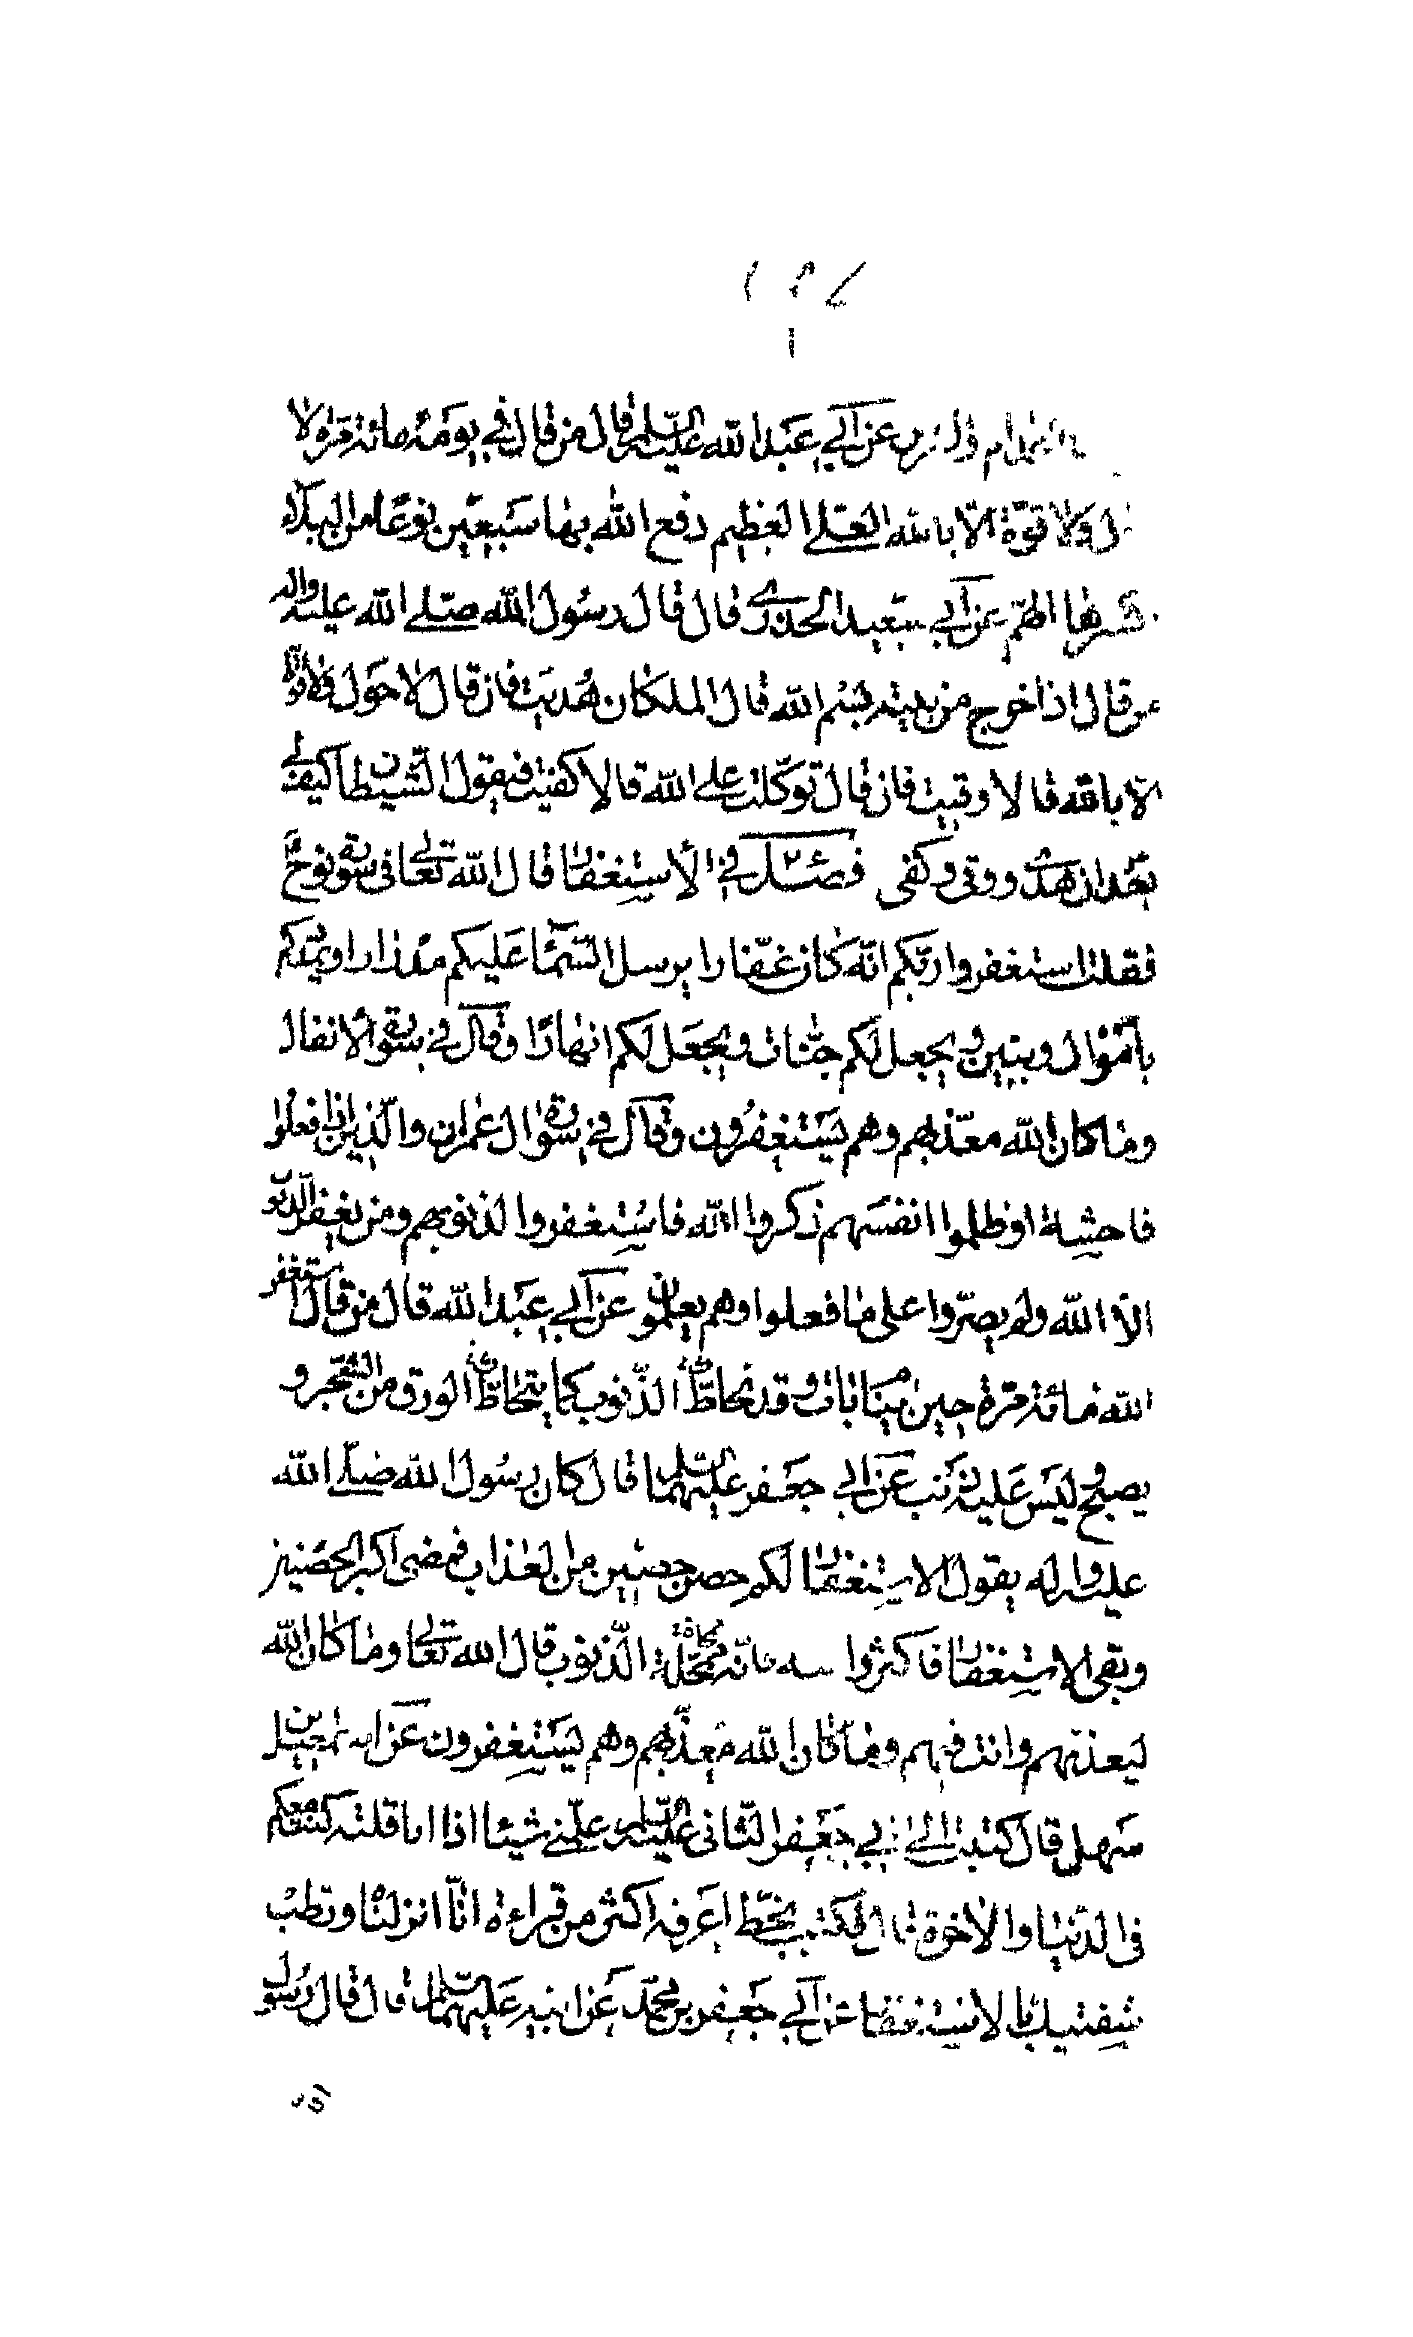 عن ابي عبد الله عليه السلم قال من قال في يومه مائة مرة لا
ولا قوة الا بالله العلي العظيم دفع الله بها سبعين نوعا من البلاء
الهم عن ابي سعيد الخدري قال قال رسول الله صلى الله عليه واله
من قال اذا خرج من بيته بسم الله قال الملكان هديت فان قال لا حول ولا قوة
الا بالله قالا وقيت فان قال توكلت على الله قالا كفيت فيقول الشيطان كيف لي
بعبد هدي ووقي وكفى فصل في الاستغفار قال الله تعالى في سورة نوح
فقلت استغفروا ربكم انه كان غفارا يرسل السماء عليكم مدرارا ويمددكم
باموال وبنين ويجعل لكم جنات ويجعل لكم انهارا وقال في سورة الانفال
وما كان الله معذبهم وهم يستغفرون وقال في سورة ال عمران والذين اذا فعلوا
فاحشة او ظلموا انفسهم ذكروا الله فاستغفروا لذنوبهم ومن يغفر الذنوب
الا الله ولم يصروا على ما فعلوا وهم يعلمون عن ابي عبد الله قال من قال استغفر
الله مائة مرة حين ينام بات وقد تحاط الذنوب كما يتحاط الورق من الشجر و
يصبح وليس عليه ذنب عن ابي جعفر عليهما السلم قال كان رسول الله صلى الله
عليه واله يقول الاستغفار لكم حصن حصنين من العذاب فمضى اكبر الحصنين
وبقى الاستغفار فاكثروا منه فانه ممحاة الذنوب قال الله تعالى وما كان الله
ليعذبهم وانت فيهم وما كان الله معذبهم وهم يستغفرون عن اسمعيل بن
سهل قال كتبت الى ابي جعفر الثاني عليه السلم علمني شيئا اذا انا قلته كنت معكم
في الدنيا والاخرة قال فكتب بخط اعرفه اكثر من قراءة انا انزلناه ورطب
شفتيك بالاستغفار عن ابي جعفر بن محمد عن ابيه عليهما السلم قال قال رسول